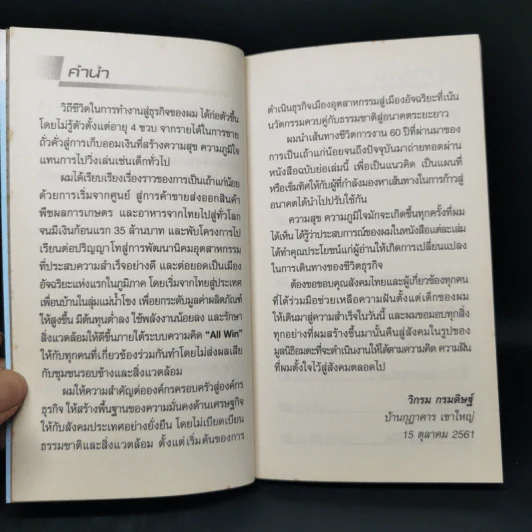 คำนำ
วิถีชีวิตในการทำงานสู่ธุรกิจของผม ได้ก่อตัวขึ้น
โดยไม่รู้ตัวตั้งแต่อายุ 4 ขวบ จากรายได้ในการขาย
ถั่วคั่วสู่การเก็บออมเงินที่สร้างความสุข ความภูมิใจ
แทนการไปวิ่งเล่นเช่นเด็กทั่วไป
ผมได้เรียบเรียงเรื่องราวของการเป็นเถ้าแก่น้อย
ด้วยการเริ่มจากศูนย์ สู่การค้าขายส่งออกสินค้า
พืชผลการเกษตร และอาหารจากไทยไปสู่ทั่วโลก
จนมีเงินก้อนแรก 35 ล้านบาท และพับโครงการไป
เรียนต่อปริญญาโทสู่การพัฒนานิคมอุตสาหกรรม
ที่ประสบความสำเร็จอย่างดี และต่อยอดเป็นเมือง
อัจฉริยะแห่งแรกในภูมิภาค โดยเริ่มจากไทยสู่ประเทศ
เพื่อนบ้านในลุ่มแม่น้ำโขง เพื่อยกระดับมูลค่าผลิตภัณฑ์
ให้สูงขึ้น มีต้นทุนต่ำลง ใช้พลังงานน้อยลง และรักษา
สิ่งแวดล้อมให้ดีขึ้นภายใต้ระบบความคิด "All Win"
ให้กับทุกคนที่เกี่ยวข้องร่วมกันทำโดยไม่ส่งผลเสีย
กับชุมชนรอบข้างและสิ่งแวดล้อม
ผมให้ความสำคัญต่อองค์กรครอบครัวสู่องค์กร
ธุรกิจ ให้สร้างพื้นฐานของความมั่นคงด้านเศรษฐกิจ
ให้กับสังคมประเทศอย่างยั่งยืน โดยไม่เบียดเบียน
ธรรมชาติและสิ่งแวดล้อม ตั้งแต่เริ่มต้นของการ
ดำเนินธุรกิจเมืองอุตสาหกรรมสู่เมืองอัจฉริยะที่เน้น
นวัตกรรมควบคู่กับธรรมชาติสู่อนาคตระยะยาว
ผมนำเส้นทางชีวิตการงาน 60 ปีที่ผ่านมาของ
การเป็นเถ้าแก่น้อยจนถึงปัจจุบันมาถ่ายทอดผ่าน
หนังสือฉบับย่อเล่มนี้ เพื่อเป็นแนวคิด เป็นแผนที่
หรือเข็มทิศให้กับผู้ที่กำลังมองหาเส้นทางในการก้าวสู่
อนาคตได้นำไปปรับใช้กัน
ความสุข ความภูมิใจมักจะเกิดขึ้นทุกครั้งที่ผม
ได้เห็น ได้รู้ว่าประสบการณ์ของผมในหนังสือแต่ละเล่ม
ได้ทำคุณประโยชน์แก่ผู้อ่านให้เกิดการเปลี่ยนแปลง
ในการเดินทางของชีวิตธุรกิจ
ต้องขอขอบคุณสังคมไทยและผู้เกี่ยวข้องทุกคน
ที่ได้ร่วมมือช่วยเหลือความฝันตั้งแต่เด็กของผม
ให้เดินมาสู่ความสำเร็จในวันนี้ และผมขอมอบทุกสิ่ง
ทุกอย่างที่ผมสร้างขึ้นมานั้นคืนสู่สังคมในรูปของ
มูลนิธิอมตะที่จะดำเนินงานให้ได้ตามความคิด ความฝัน
ที่ผมตั้งใจไว้สู่สังคมตลอดไป
วิกรม กรมดิษฐ์
บ้านกุฎาคาร เขาใหญ่
15 ตุลาคม 2561